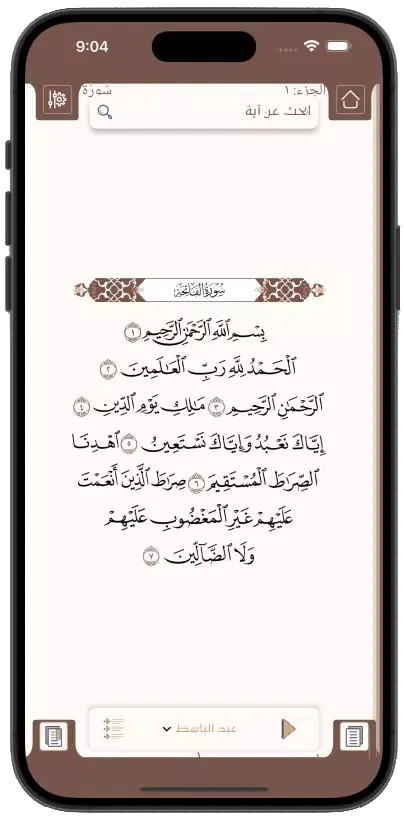 9:04
الجزء: ١ سورة
ابحث عن آية
سُورَةُ الفَاتِحَةِ
بِسْمِ ٱللَّهِ ٱلرَّحْمَٰنِ ٱلرَّحِيمِ ١
ٱلْحَمْدُ لِلَّهِ رَبِّ ٱلْعَٰلَمِينَ ٢
ٱلرَّحْمَٰنِ ٱلرَّحِيمِ ٣ مَٰلِكِ يَوْمِ ٱلدِّينِ ٤
إِيَّاكَ نَعْبُدُ وَإِيَّاكَ نَسْتَعِينُ ٥ ٱهْدِنَا
ٱلصِّرَٰطَ ٱلْمُسْتَقِيمَ ٦ صِرَٰطَ ٱلَّذِينَ أَنْعَمْتَ
عَلَيْهِمْ غَيْرِ ٱلْمَغْضُوبِ عَلَيْهِمْ
وَلَا ٱلضَّآلِّينَ ٧
عبد الباسط